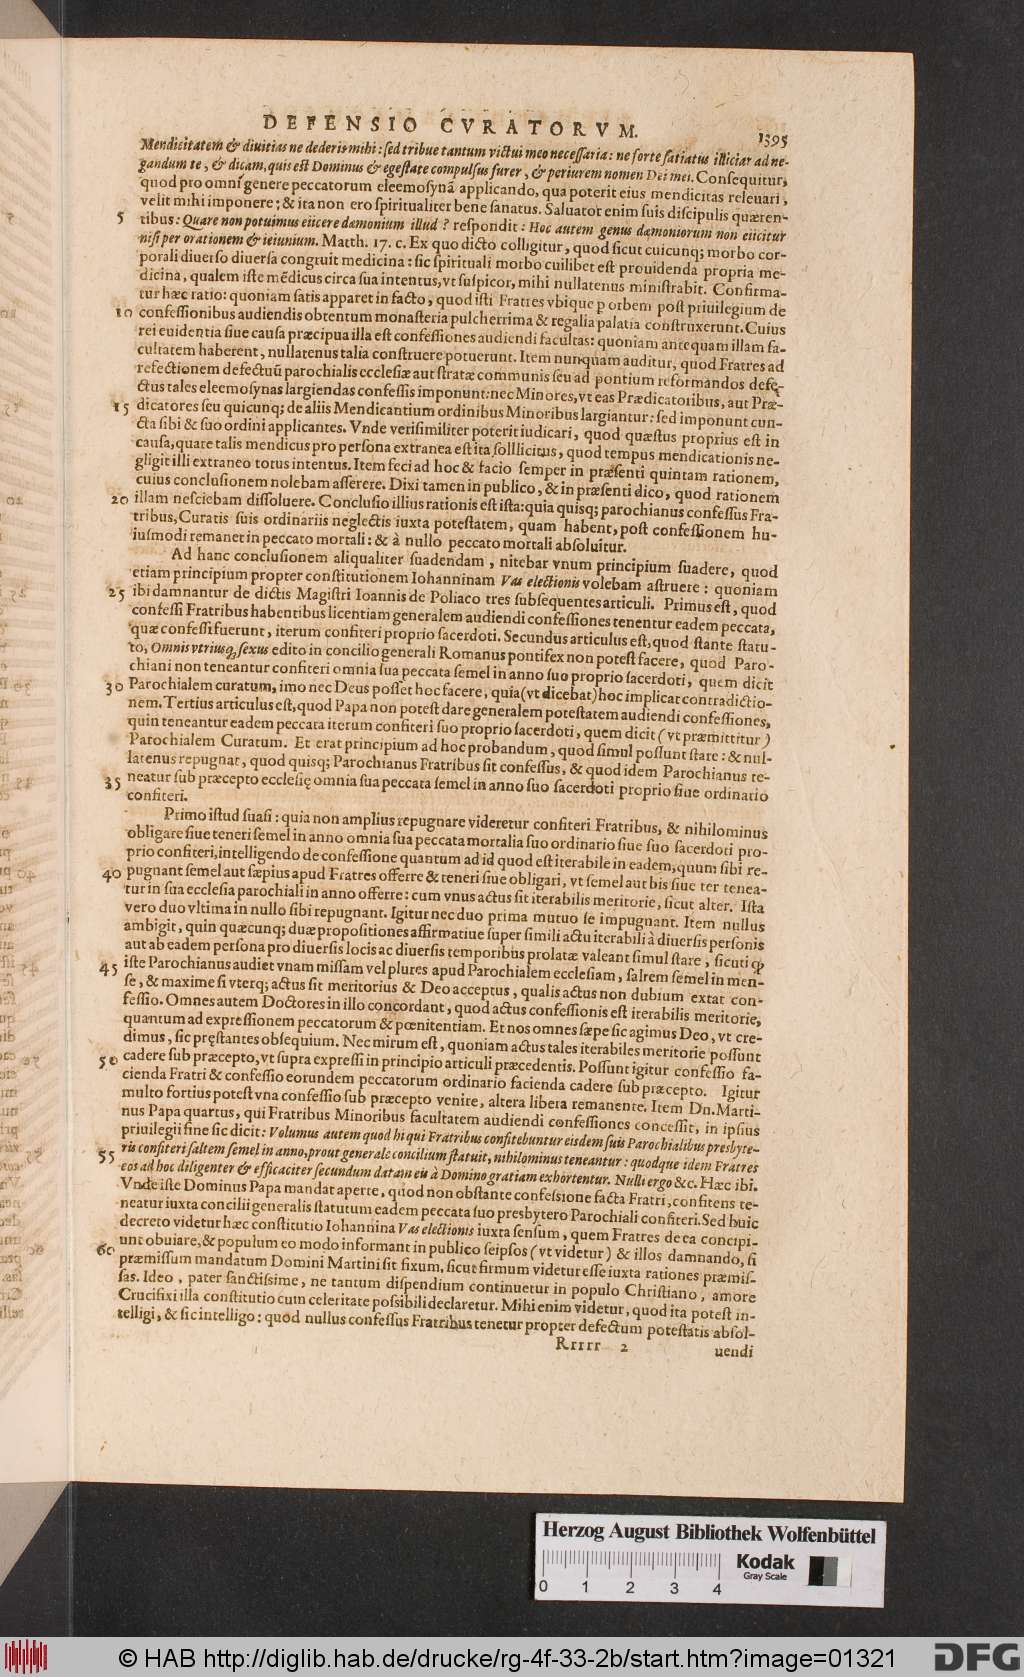 DEFENSIO CVRATORVM. 1395
Mendicitatem & diuitias ne dederis mihi: sed tribue tantum victui meo necessaria: ne forte satiatus illiciar ad ne-
gandum te, & dicam, quis est Dominus & egestate compulsus furer, & periurem nomen Dei mei. Consequitur,
quod pro omni genere peccatorum eleemosynā applicando, qua poterit eius mendicitas releuari,
velit mihi imponere: & ita non ero spiritualiter bene sanatus. Saluator enim suis discipulis quæren-
5 tibus: Quare non potuimus eiicere dæmonium illud? respondit: Hoc autem genus dæmoniorum non eiicitur
nisi per orationem & ieiunium. Matth. 17. c. Ex quo dicto colligitur, quod sicut cuicunq; morbo cor-
porali diuerso diuersa congruit medicina: sic spirituali morbo cuilibet est prouidenda propria me-
dicina, qualem iste mēdicus circa sua intentus, vt suspicor, mihi nullatenus ministrabit. Confirma-
tur hæc ratio: quoniam satis apparet in facto, quod isti Fratres vbique p orbem post priuilegium de
10 confessionibus audiendis obtentum monasteria pulcherrima & regalia palatia construxerunt. Cuius
rei euidentia siue causa præcipua illa est confessiones audiendi facultas: quoniam antequam illam fa-
cultatem haberent, nullatenus talia construere potuerunt. Item nunquam auditur, quod Fratres ad
refectionem defectuū parochialis ecclesiæ aut stratæ communis seu ad pontium reformandos defe-
ctus tales eleemosynas largiendas confessis imponunt: nec Minores, vt eas Prædicatoribus, aut Præ-
15 dicatores seu quicunq; de aliis Mendicantium ordinibus Minoribus largiantur: sed imponunt cun-
cta sibi & suo ordini applicantes. Vnde verisimiliter poterit iudicari, quod quæstus proprius est in
causa, quare talis mendicus pro persona extranea est ita solllicitus, quod tempus mendicationis ne-
gligit illi extraneo totus intentus. Item feci ad hoc & facio semper in præsenti quintam rationem,
cuius conclusionem nolebam asserere. Dixi tamen in publico, & in præsenti dico, quod rationem
20 illam nesciebam dissoluere. Conclusio illius rationis est ista: quia quisq; parochianus confessus Fra-
tribus, Curatis suis ordinariis neglectis iuxta potestatem, quam habent, post confessionem hu-
iusmodi remanet in peccato mortali: & à nullo peccato mortali absoluitur.
Ad hanc conclusionem aliqualiter suadendam, nitebar vnum principium suadere, quod
etiam principium propter constitutionem Iohanninam Vas electionis volebam astruere: quoniam
25 ibi damnantur de dictis Magistri Ioannis de Poliaco tres subsequentes articuli. Primus est, quod
confessi Fratribus habentibus licentiam generalem audiendi confessiones tenentur eadem peccata,
quæ confessi fuerunt, iterum confiteri proprio sacerdoti. Secundus articulus est, quod stante statu-
to, Omnis vtriusq; sexus edito in concilio generali Romanus pontifex non potest facere, quod Paro-
chiani non teneantur confiteri omnia sua peccata semel in anno suo proprio sacerdoti, quem dicit
30 Parochialem curatum, imo nec Deus posset hoc facere, quia (vt dicebat) hoc implicat contradictio-
nem. Tertius articulus est, quod Papa non potest dare generalem potestatem audiendi confessiones,
quin teneantur eadem peccata iterum confiteri suo proprio sacerdoti, quem dicit (vt præmittitur)
Parochialem Curatum. Et erat principium ad hoc probandum, quod simul possunt stare: & nul-
latenus repugnat, quod quisq; Parochianus Fratribus sit confessus, & quod idem Parochianus te-
35 neatur sub præcepto ecclesię omnia sua peccata semel in anno suo sacerdoti proprio siue ordinario
confiteri.
Primo istud suasi: quia non amplius repugnare videretur confiteri Fratribus, & nihilominus
obligare siue teneri semel in anno omnia sua peccata mortalia suo ordinario siue suo sacerdoti pro-
prio confiteri, intelligendo de confessione quantum ad id quod est iterabile in eadem, quum sibi re-
40 pugnant semel aut sæpius apud Fratres offerre & teneri siue obligari, vt semel aut bis siue ter tenea-
tur in sua ecclesia parochiali in anno offerre: cum vnus actus sit iterabilis meritorie, sicut alter. Ista
vero duo vltima in nullo sibi repugnant. Igitur nec duo prima mutuo se impugnant. Item nullus
ambigit, quin quæcunq; duæ propositiones affirmatiue super simili actu iterabili à diuersis personis
aut ab eadem persona pro diuersis locis ac diuersis temporibus prolatæ valeant simul stare, sicuti ꝙ
45 iste Parochianus audiet vnam missam vel plures apud Parochialem ecclesiam, saltem semel in men-
se, & maxime si vterq; actus sit meritorius & Deo acceptus, qualis actus non dubium extat con-
fessio. Omnes autem Doctores in illo concordant, quod actus confessionis est iterabilis meritorie,
quantum ad expressionem peccatorum & pœnitentiam. Et nos omnes sæpe sic agimus Deo, vt cre-
dimus, sic pręstantes obsequium. Nec mirum est, quoniam actus tales iterabiles meritorie possunt
50 cadere sub præcepto, vt supra expressi in principio articuli præcedentis. Possunt igitur confessio fa-
cienda Fratri & confessio eorundem peccatorum ordinario facienda cadere sub præcepto. Igitur
multo fortius potest vna confessio sub præcepto venire, altera libera remanente. Item Dn. Marti-
nus Papa quartus, qui Fratribus Minoribus facultatem audiendi confessiones concessit, in ipsius
priuilegii fine sic dicit: Volumus autem quod hi qui Fratribus confitebuntur eisdem suis Parochialibus presbyte-
55 ris confiteri saltem semel in anno, prout generale concilium statuit, nihilominus teneantur: quodque idem Fratres
eos ad hoc diligenter & efficaciter secundum datam eis à Domino gratiam exhortentur. Nulli ergo &c. Hæc ibi.
Vnde iste Dominus Papa mandat aperte, quod non obstante confessione facta Fratri, confitens te-
neatur iuxta concilii generalis statutum eadem peccata suo presbytero Parochiali confiteri. Sed huic
decreto videtur hæc constitutio Iohannina Vas electionis iuxta sensum, quem Fratres de ea concipi-
60 unt obuiare, & populum eo modo informant in publico seipsos (vt videtur) & illos damnando, si
præmissum mandatum Domini Martini sit fixum, sicut firmum videtur esse iuxta rationes præmis-
sas. Ideo, pater sanctissime, ne tantum dispendium continuetur in populo Christiano, amore
Crucifixi illa constitutio cum celeritate possibili declaretur. Mihi enim videtur, quod ita potest in-
telligi, & sic intelligo: quod nullus confessus Fratribus tenetur propter defectum potestatis absol-
Rrrrr 2 uendi
Herzog August Bibliothek Wolfenbüttel
0 1 2 3 4
Kodak
Gray Scale
© HAB http://diglib.hab.de/drucke/rg-4f-33-2b/start.htm?image=01321
DFG